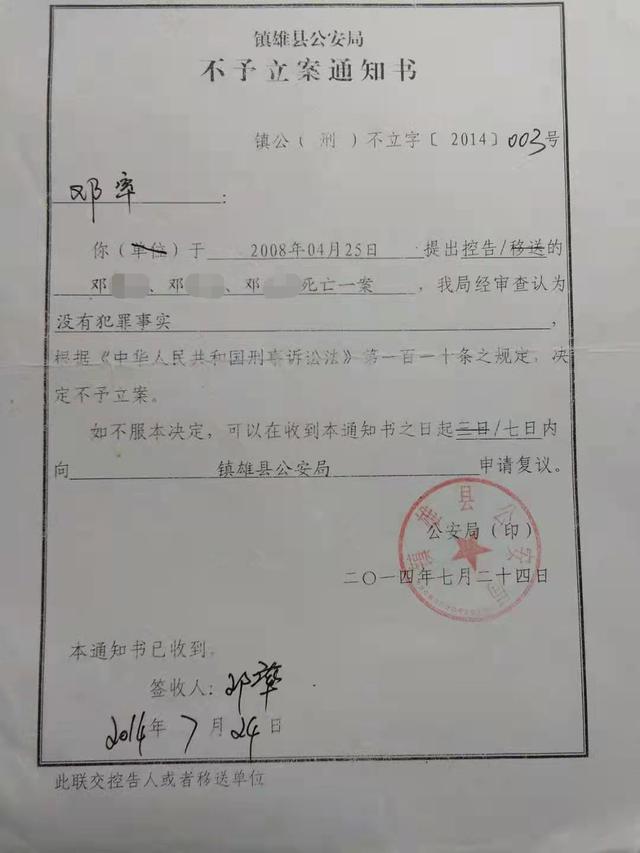 镇雄县公安局
不予立案通知书
镇公（ 刑 ）不立字〔 2014〕003号
邓率：
你（单位）于 2008年04月25日 提出控告/移送的
邓、邓、邓死亡一案，我局经审查认为
没有犯罪事实，
根据《中华人民共和国刑事诉讼法》第一百一十条之规定，决
定不予立案。
如不服本决定，可以在收到本通知书之日起三日/七日内
向 镇雄县公安局 申请复议。
镇雄县公安局
公安局（印）
二〇一四年七月二十四日
本通知书已收到。
签收人：邓率
2014年 7 月 24 日
此联交控告人或者移送单位